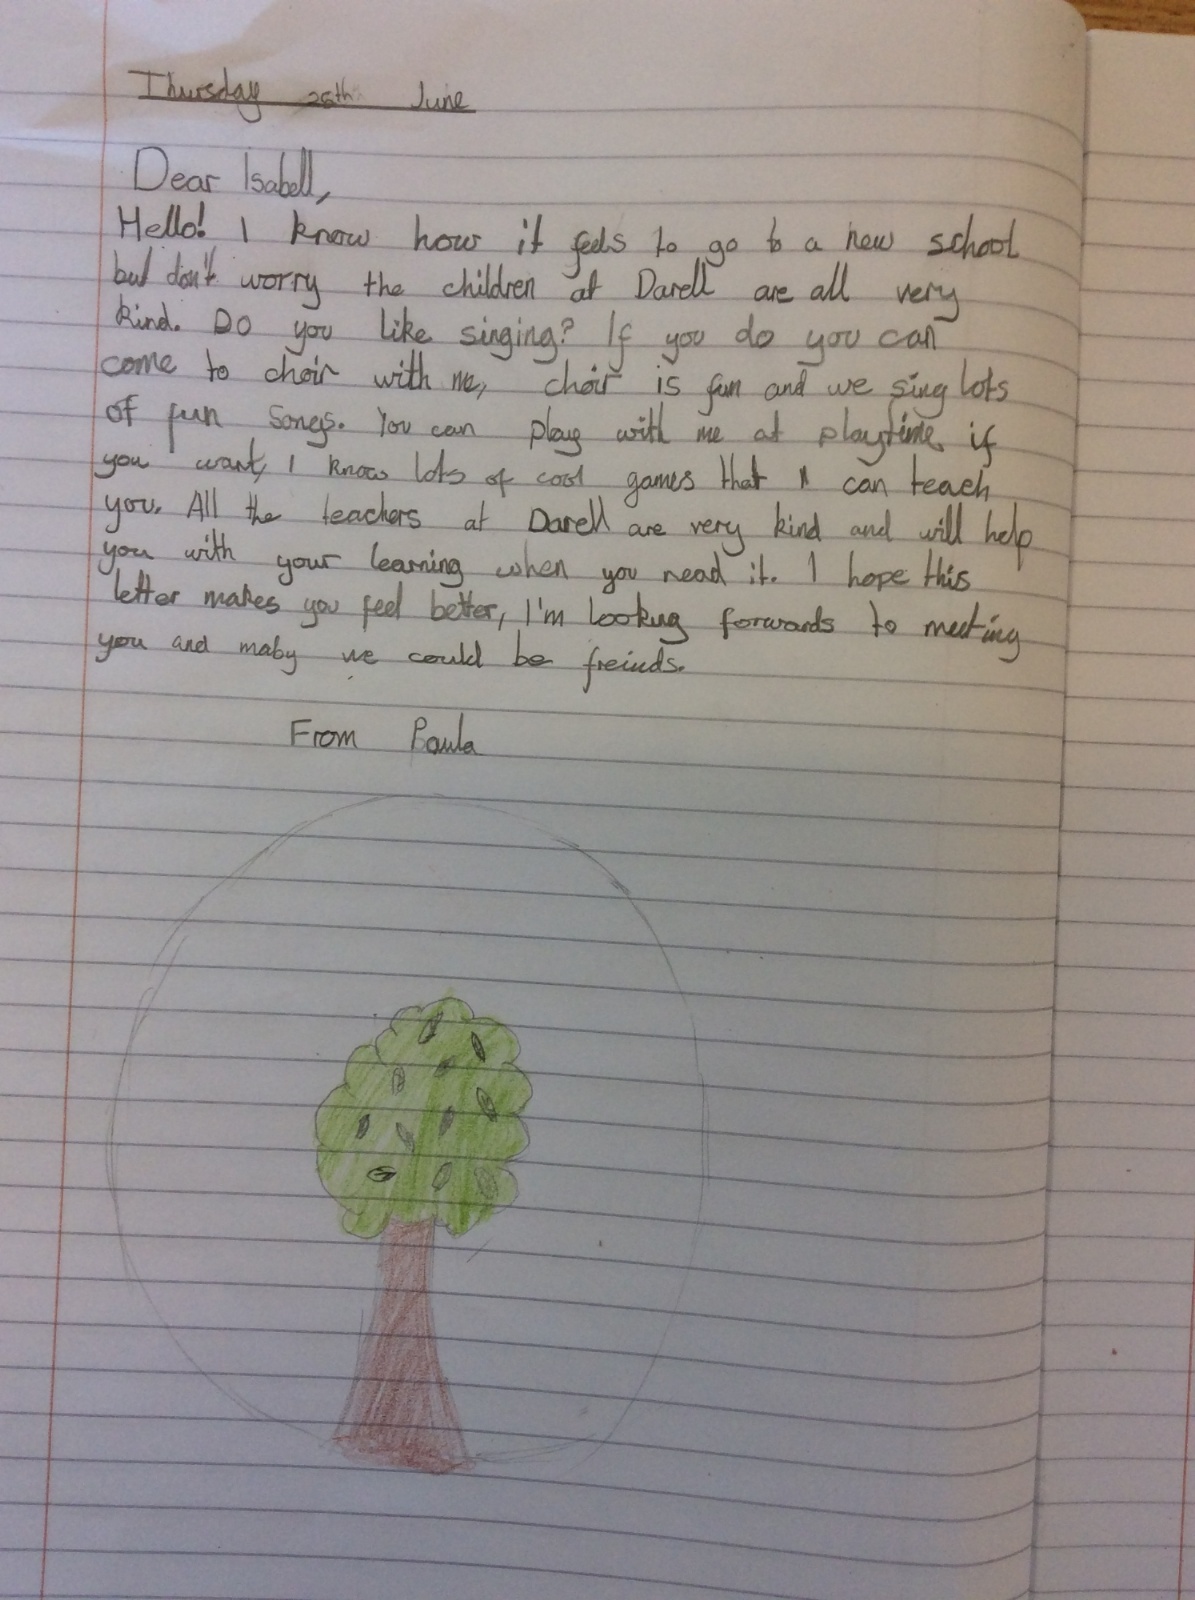 Thursday 26th June
Dear Isabell,
Hello! I know how it feels to go to a new school
but don't worry the children at Darell are all very
kind. Do you like singing? If you do you can
come to choir with me, choir is fun and we sing lots
of fun songs. You can play with me at playtime if
you want, I know lots of cool games that I can teach
you. All the teachers at Darell are very kind and will help
you with your learning when you need it. I hope this
letter makes you feel better, I'm looking forwards to meeting
you and maby we could be freinds.
From Paula